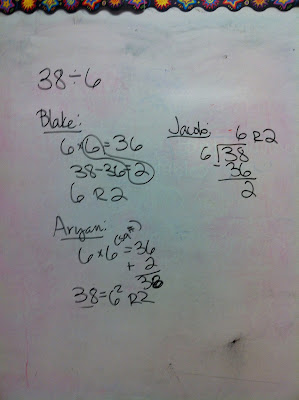 38÷6
Blake:
6×6=36
38-36=2
6 R2
Jacob:
6 R2
6 38
-36
2
Aryan:
6×6 (sq #) =36
+ 2
38
38=6² R2